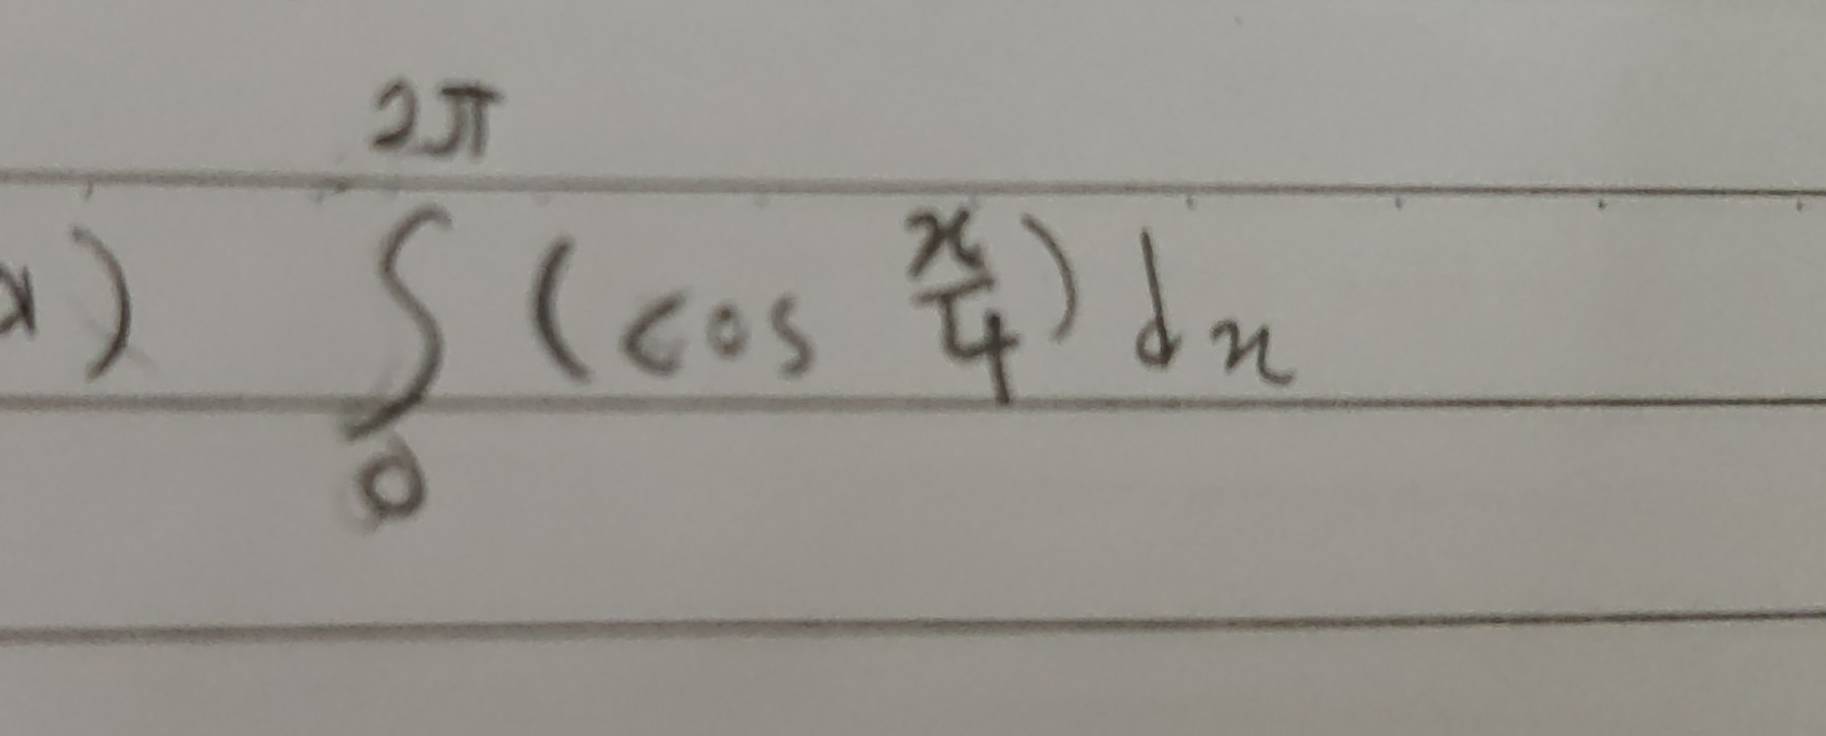 a) ∫₀^{2π} (cos x/4) dx